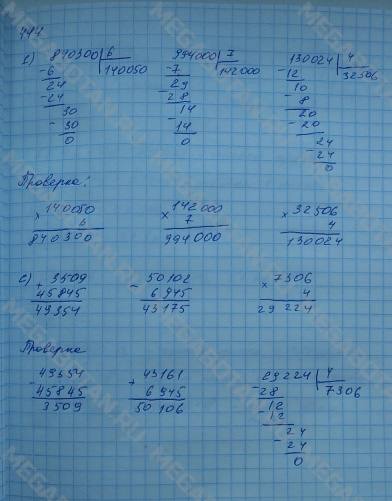 444
1) 840300 | 6 994000 | 7 130024 | 4
-6 140050 -7 142000 -12 32506
24 29 10
-24 -28 -8
30 14 20
-30 -14 -20
0 0 24
-24
0
Проверка:
×140050 ×142000 ×32506
6 7 4
840300 994000 130024
2) +3509 -50102 ×7306
45845 6945 4
49354 43175 29224
Проверка
-49354 +43161 29224 | 4
45845 6945 -28 7306
3509 50106 12
-12
24
-24
0
MEGABOTAN.RU